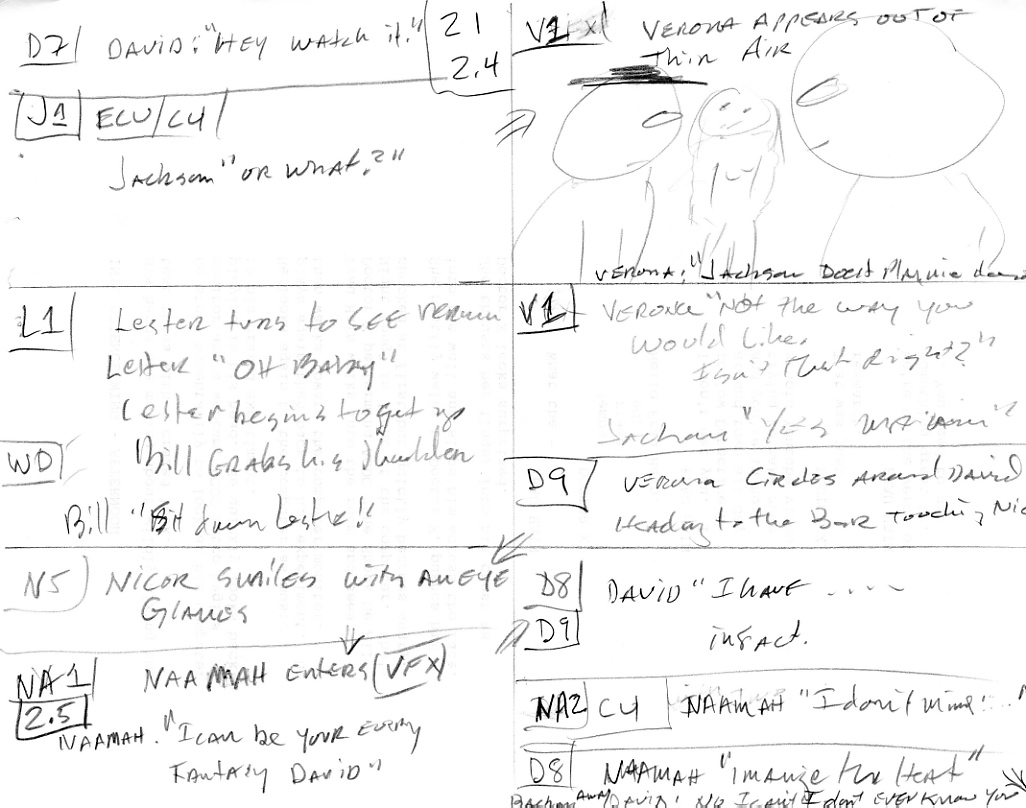 D7 DAVID: "HEY WATCH it." 21
2.4
J1 ECU/CU
Jackson "OR WHAT?"
V1 FX VERONA APPEARS OUT OF
Thin AIR
VERONA: "Jackson Doesn't
L1 Lester turns to SEE
Lester "OH BABY"
Lester begins to get up
WD Bill GRABS his Shoulder
Bill "Sit down Lester!"
V1 VERONA "NOT the way you
Would Like.
Isn't that Right?"
Jackson "YES
D9 VERONA CIRCLES AROUND DAVID
Heading to the Bar Touching Nic
N5 NICOR SMILES WITH AN EYE
GLANCES
NA1 NAAMAH ENTERS (VFX)
2.5
NAAMAH. "I CAN be YOUR EVERY
FANTASY DAVID"
D8 DAVID "I HAVE ....
D9 infact.
NA2 CU NAAMAH "I don't mind...
D8 NAAMAH "imagine the Heat"
AWAY DAVID: No I can't I don't EVEN Know You